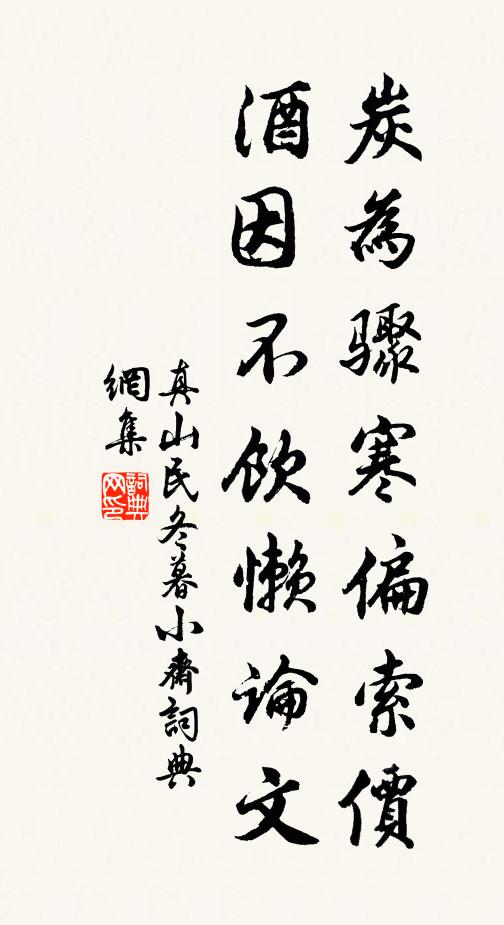 炭為驟寒偏索價
酒因不飲懶論文
真山民冬暮小齋詞典
網集
詞典
网印